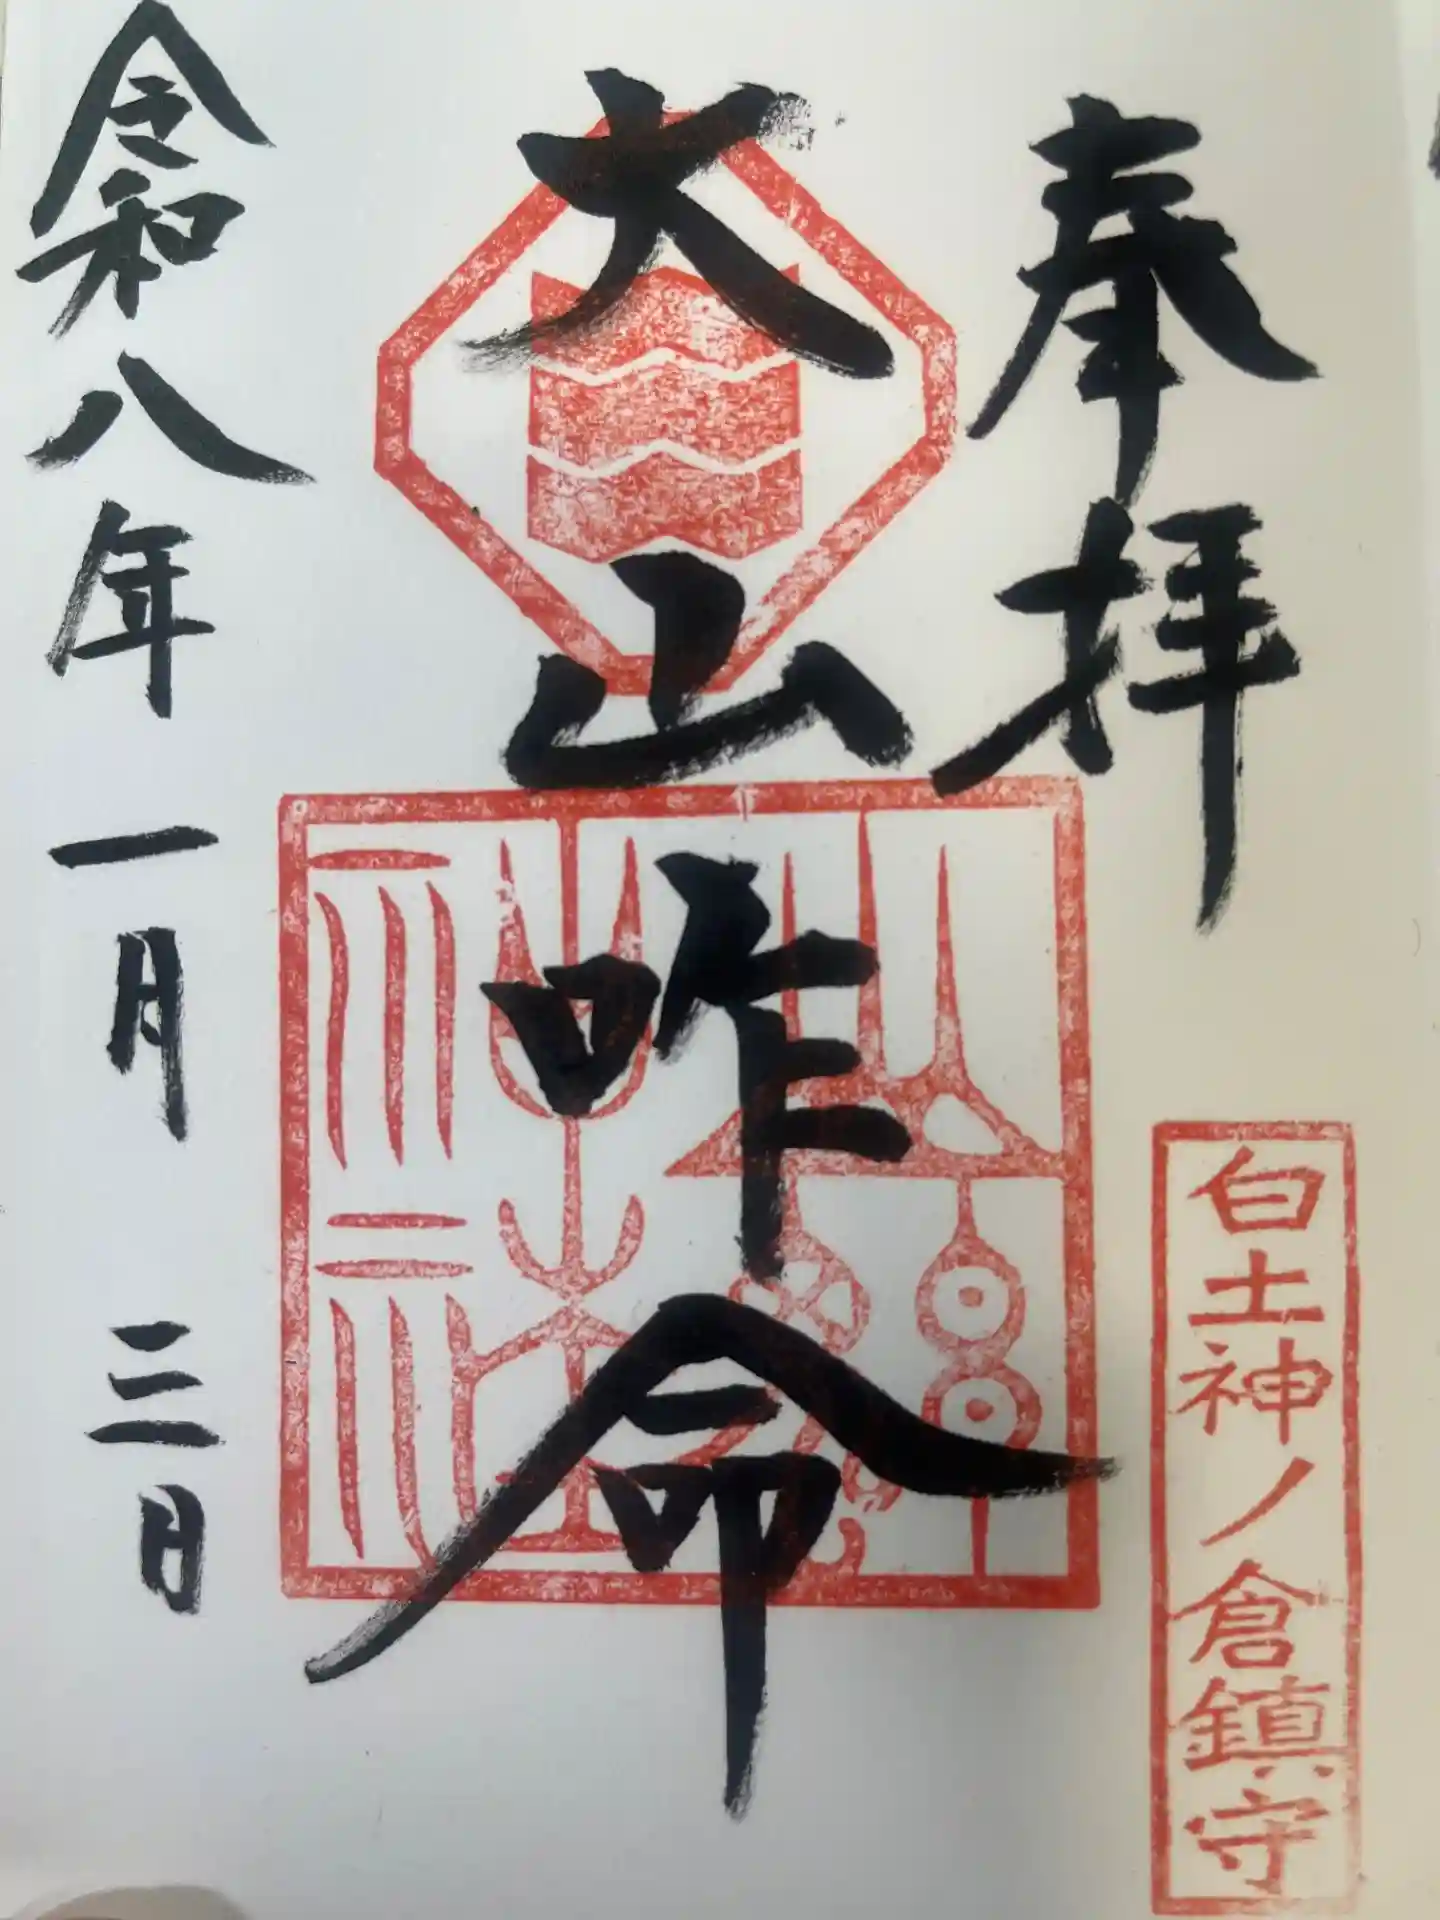 奉拝
白土神ノ倉鎮守
大山咋命
令和八年一月三日